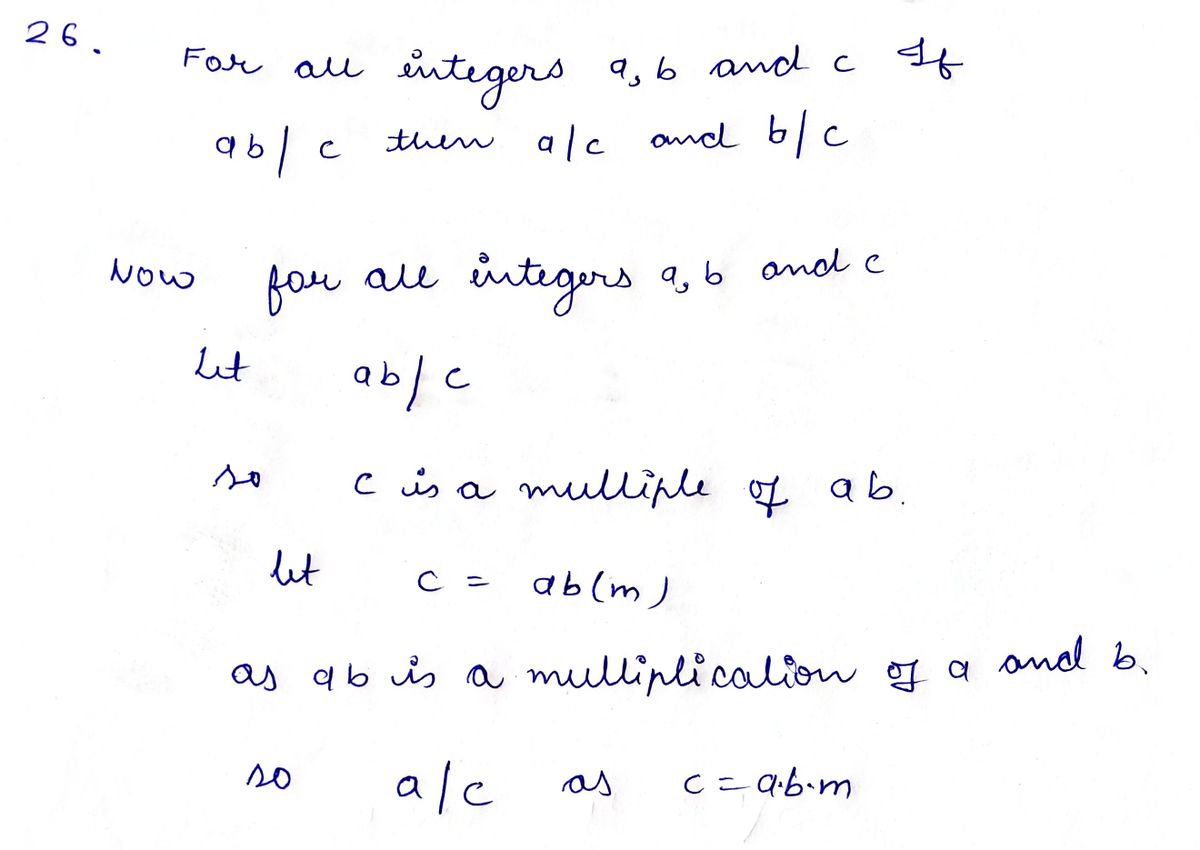 26.
For all integers a, b and c If
ab/c then a/c and b/c
Now for all integers a, b and c
Let ab/c
so c is a multiple of ab.
let c = ab(m)
as ab is a multiplication of a and b.
so a/c as c = a.b.m